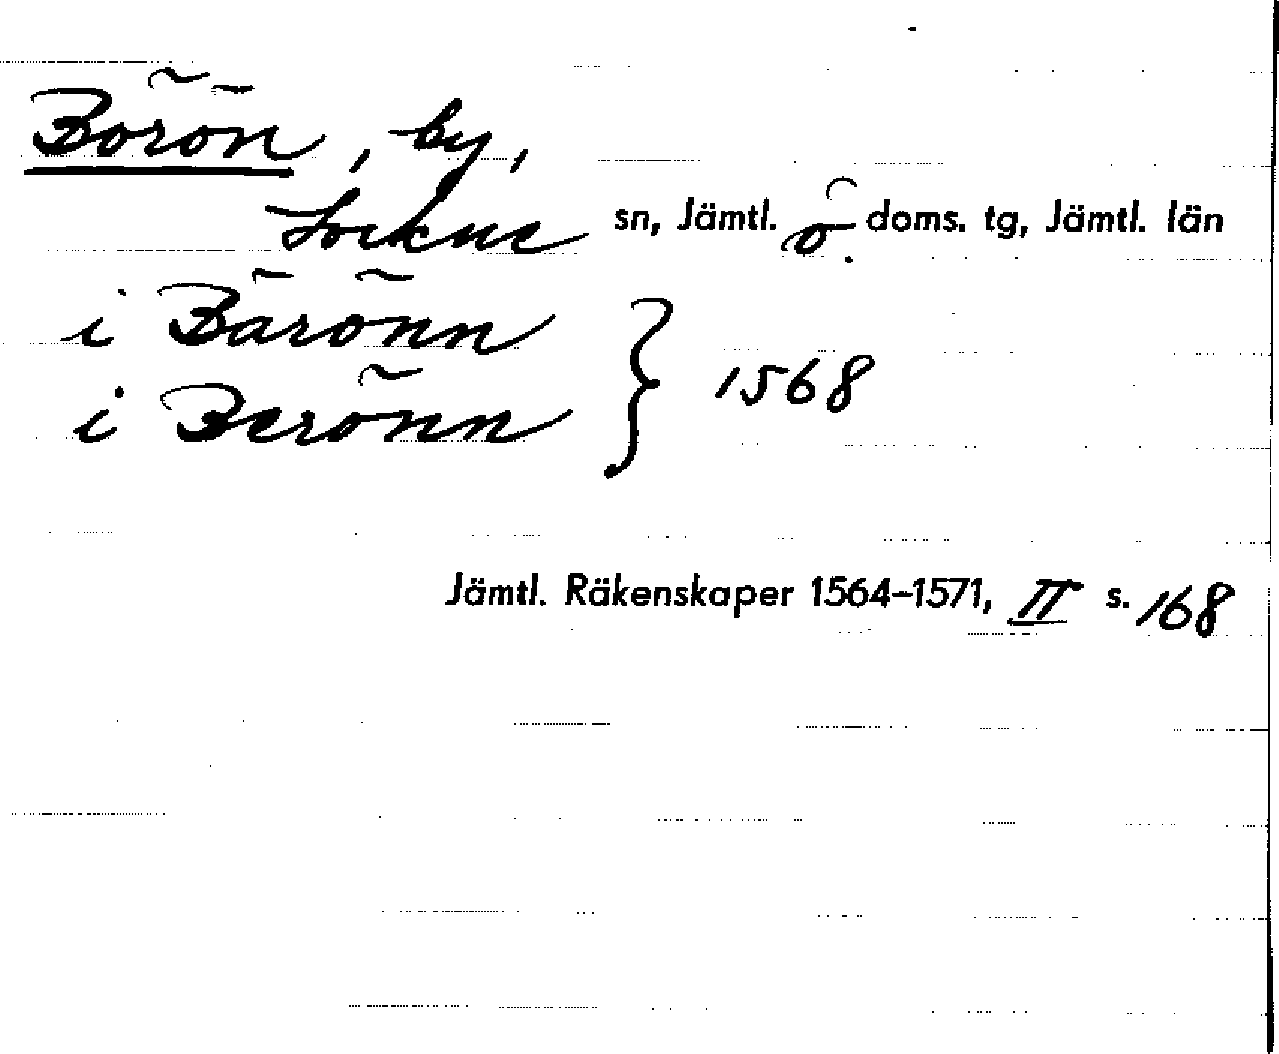 Börön, by,
Lockne sn, Jämtl. ö. doms. tg, Jämtl. län
i Bärönn } 1568
i Berönn
Jämtl. Räkenskaper 1564–1571, II s. 168